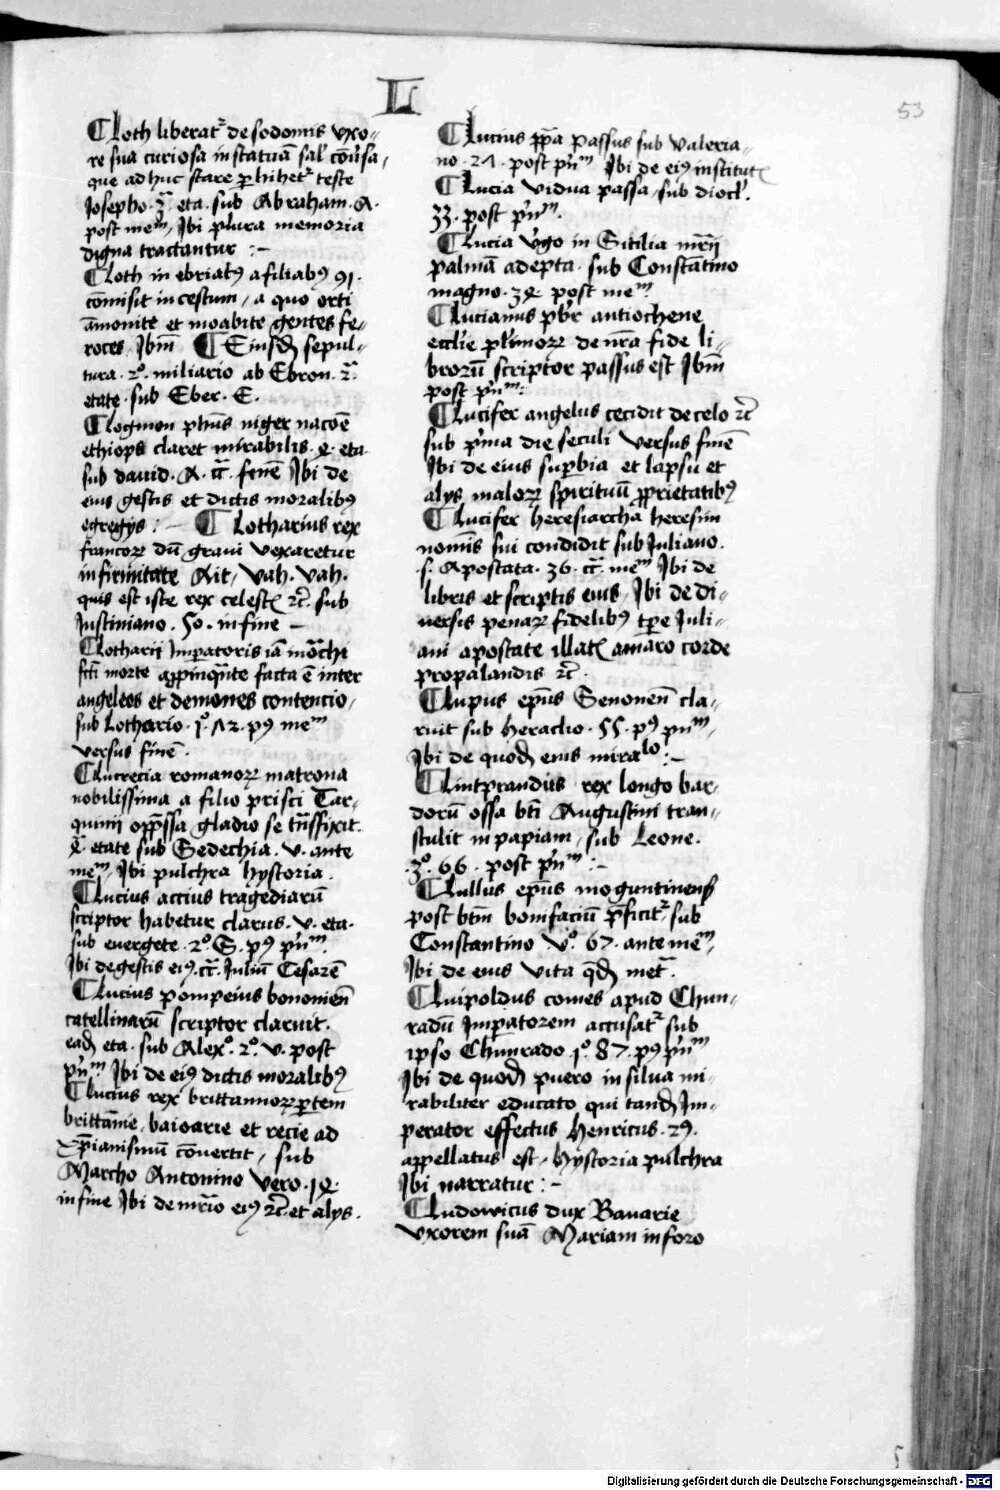 L
53
Loth liberatr de sodomis uxo-
re sua curiosa in statuam sal' conversa,
que adhuc stare perhibetr teste
Josepho. eta. sub Abraham. A.
post mem, Ibi plura memoria
digna tractantur :-
Loth inebriatus a filiabus
comisit incestum, a quo orti
amonite et moabite gentes fe-
roces, Ibm Eiusd sepul-
tura. 2o. miliario ab Ebron.
etate. sub Eber. E.
Logmon phus niger nacoe
ethiops claret mirabilis. eta.
sub david. A. fine Ibi de
eius gestis et dictis moralibus
egregys : - Lotharius rex
francor dum gravi vexaretur
infirmitate Ait, Vah. Vah.
quis est iste rex celest rc. sub
Justiniano. 50. in fine -
Lotharii Imperatoris iam
morte appinquate facta e inter
angelos et demones contencio,
sub Lothario. 1o. 12. p9 mem
versus fine.
Lucrecia romanor matrona
nobilissima a filio prisci Tar-
quinii oppssa gladio se tnsfixit.
etate sub Sedechia. v. ante
mem, Ibi pulchra hystoria.
Lucius accius tragediaru
scriptor habetur clarus. v. eta.
sub euergete. 2o. G. p9 pnm.
Ibi de gestis ei9. Juliu Cesare
Lucius pompeius bononien
catellinaru scriptor claruit.
ead eta. sub Alexo. 2o. v. post
pnm. Ibi de ei9 dictis moralib9
Lucius rex brittannor ptem
brittanie, baioarie et recie ad
xpianismu convertit, sub
Marcho Antonino Vero.
in fine Ibi de ei9 rc. et alys.
Lucius ppa passus sub Valeria-
no. 21. post pnm Ibi de ei9 institut
Lucia vidua passa sub diocl'.
33. post pnm.
Lucia virgo in Sicilia
palma adepta. sub Constatino
magno. post mem
Lucianus pbr antiochene
ecclie de nra fide li-
broru scriptor passus est Ibm
post pnm:
Lucifer angelus cecidit de celo rc
sub pma die seculi versus fine
Ibi de eius supbia et lapsu et
alys malor spirituu pprietatib9
Lucifer heresiarcha heresim
nominis sui condidit sub Juliano.
.s. Apostata. 36. mem Ibi de
libris et scriptis eius, Ibi de di-
versis penar fidelib9 tpe Juli-
ani apostate illat amaro corde
propalandis rc.
Lupus epus Senonen cla-
ruit sub heraclio. 55. p9 pnm,
Ibi de quod eius miralo :-
Lintprandus rex longobar-
doru ossa bti Augustini tran-
stulit in papiam, sub Leone.
.3o. 66. post pnm :-
Lullus epus moguntinens
post btm bonifaciu pficitr, sub
Constantino vo. 67. ante mem,
Ibi de eius vita qd met.
Luipoldus comes apud Chun-
radu Imperatorem accusatr sub
ipso Chunrado. 1o. 87. p9 pnm
Ibi de quod puero in silva mi-
rabiliter educato qui tand Im-
perator effectus henricus. 29.
appellatus est, hystoria pulchra
Ibi narratur :-
Ludowicus dux Bavarie
uxorem sua Mariam in foro
Digitalisierung gefördert durch die Deutsche Forschungsgemeinschaft - DFG